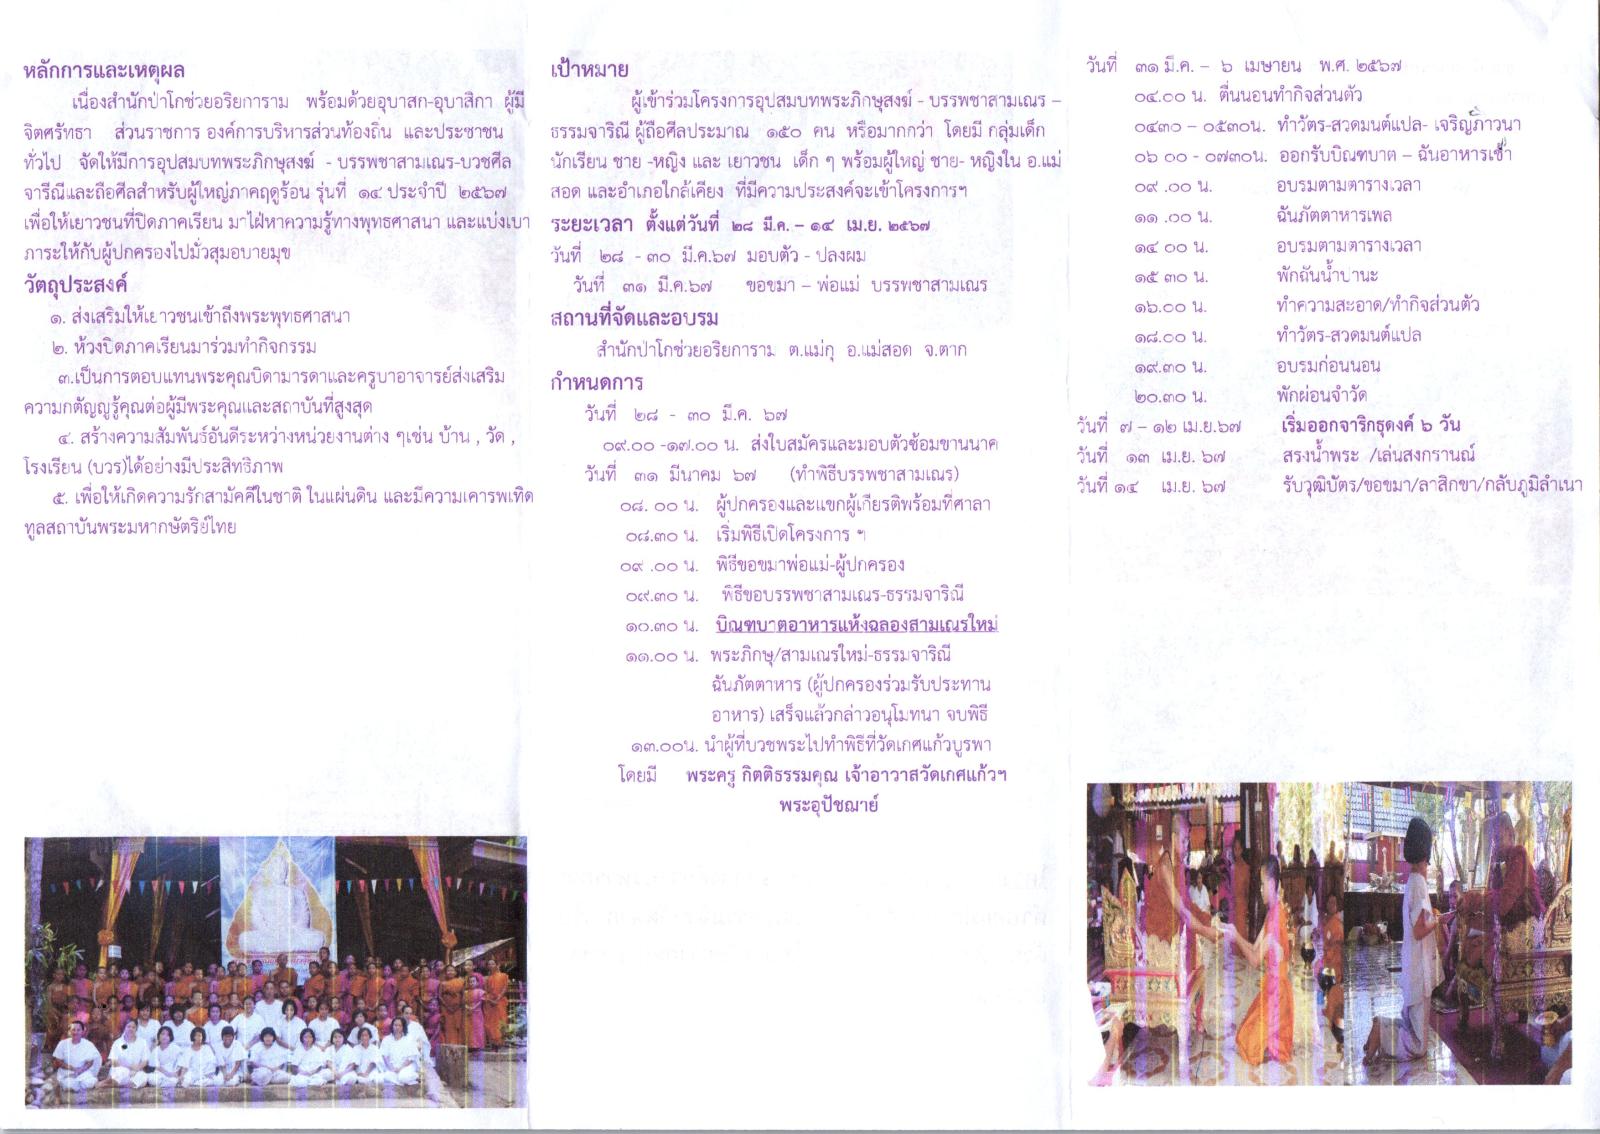 หลักการและเหตุผล
เนื่องสำนักป่าโกช่วยอริยการาม พร้อมด้วยอุบาสก-อุบาสิกา ผู้มี
จิตศรัทธา ส่วนราชการ องค์การบริหารส่วนท้องถิ่น และประชาชน
ทั่วไป จัดให้มีการอุปสมบทพระภิกษุสงฆ์ - บรรพชาสามเณร-บวชศีล
จาริณีและถือศีลสำหรับผู้ใหญ่ภาคฤดูร้อน รุ่นที่ ๑๔ ประจำปี ๒๕๖๗
เพื่อให้เยาวชนที่ปิดภาคเรียน มาไฝ่หาความรู้ทางพุทธศาสนา และแบ่งเบา
ภาระให้กับผู้ปกครองไปมั่วสุมอบายมุข
วัตถุประสงค์
๑. ส่งเสริมให้เยาวชนเข้าถึงพระพุทธศาสนา
๒. ห้วงปิดภาคเรียนมาร่วมทำกิจกรรม
๓.เป็นการตอบแทนพระคุณบิดามารดาและครูบาอาจารย์ส่งเสริม
ความกตัญญูรู้คุณต่อผู้มีพระคุณและสถาบันที่สูงสุด
๔. สร้างความสัมพันธ์อันดีระหว่างหน่วยงานต่าง ๆเช่น บ้าน , วัด ,
โรงเรียน (บวร)ได้อย่างมีประสิทธิภาพ
๕. เพื่อให้เกิดความรักสามัคคีในชาติ ในแผ่นดิน และมีความเคารพเทิด
ทูลสถาบันพระมหากษัตริย์ไทย
เป้าหมาย
ผู้เข้าร่วมโครงการอุปสมบทพระภิกษุสงฆ์ - บรรพชาสามเณร –
ธรรมจาริณี ผู้ถือศีลประมาณ ๑๕๐ คน หรือมากกว่า โดยมี กลุ่มเด็ก
นักเรียน ชาย -หญิง และ เยาวชน เด็ก ๆ พร้อมผู้ใหญ่ ชาย- หญิงใน อ.แม่
สอด และอำเภอใกล้เคียง ที่มีความประสงค์จะเข้าโครงการฯ
ระยะเวลา ตั้งแต่วันที่ ๒๘ มี.ค. – ๑๔ เม.ย. ๒๕๖๗
วันที่ ๒๘ - ๓๐ มี.ค.๖๗ มอบตัว - ปลงผม
วันที่ ๓๑ มี.ค.๖๗ ขอขมา – พ่อแม่ บรรพชาสามเณร
สถานที่จัดและอบรม
สำนักป่าโกช่วยอริยการาม ต.แม่กุ อ.แม่สอด จ.ตาก
กำหนดการ
วันที่ ๒๘ - ๓๐ มี.ค. ๖๗
๐๙.๐๐ -๑๗.๐๐ น. ส่งใบสมัครและมอบตัวซ้อมขานนาค
วันที่ ๓๑ มีนาคม ๖๗ (ทำพิธีบรรพชาสามเณร)
๐๘. ๐๐ น. ผู้ปกครองและแขกผู้เกียรติพร้อมที่ศาลา
๐๘.๓๐ น. เริ่มพิธีเปิดโครงการ ฯ
๐๙ .๐๐ น. พิธีขอขมาพ่อแม่-ผู้ปกครอง
๐๙.๓๐ น. พิธีขอบรรพชาสามเณร-ธรรมจาริณี
๑๐.๓๐ น. บิณฑบาตอาหารแห้งฉลองสามเณรใหม่
๑๑.๐๐ น. พระภิกษุ/สามเณรใหม่-ธรรมจาริณี
ฉันภัตตาหาร (ผู้ปกครองร่วมรับประทาน
อาหาร) เสร็จแล้วกล่าวอนุโมทนา จบพิธี
๑๓.๐๐น. นำผู้ที่บวชพระไปทำพิธีที่วัดเกศแก้วบูรพา
โดยมี พระครู กิตติธรรมคุณ เจ้าอาวาสวัดเกศแก้วฯ
พระอุปัชฌาย์
วันที่ ๓๑ มี.ค. – ๖ เมษายน พ.ศ. ๒๕๖๗
๐๔.๐๐ น. ตื่นนอนทำกิจส่วนตัว
๐๔๓๐ – ๐๕๓๐น. ทำวัตร-สวดมนต์แปล- เจริญภาวนา
๐๖ ๐๐ - ๐๗๓๐น. ออกรับบิณฑบาต – ฉันอาหารเช้า
๐๙ .๐๐ น. อบรมตามตารางเวลา
๑๑ .๐๐ น. ฉันภัตตาหารเพล
๑๔ ๐๐ น. อบรมตามตารางเวลา
๑๕ ๓๐ น. พักฉันน้ำปานะ
๑๖.๐๐ น. ทำความสะอาด/ทำกิจส่วนตัว
๑๘.๐๐ น. ทำวัตร-สวดมนต์แปล
๑๙.๓๐ น. อบรมก่อนนอน
๒๐.๓๐ น. พักผ่อนจำวัด
วันที่ ๗ – ๑๒ เม.ย.๖๗ เริ่มออกจาริกธุดงค์ ๖ วัน
วันที่ ๑๓ เม.ย. ๖๗ สรงน้ำพระ /เล่นสงกรานณ์
วันที่ ๑๔ เม.ย. ๖๗ รับวุฒิบัตร/ขอขมา/ลาสิกขา/กลับภูมิลำเนา